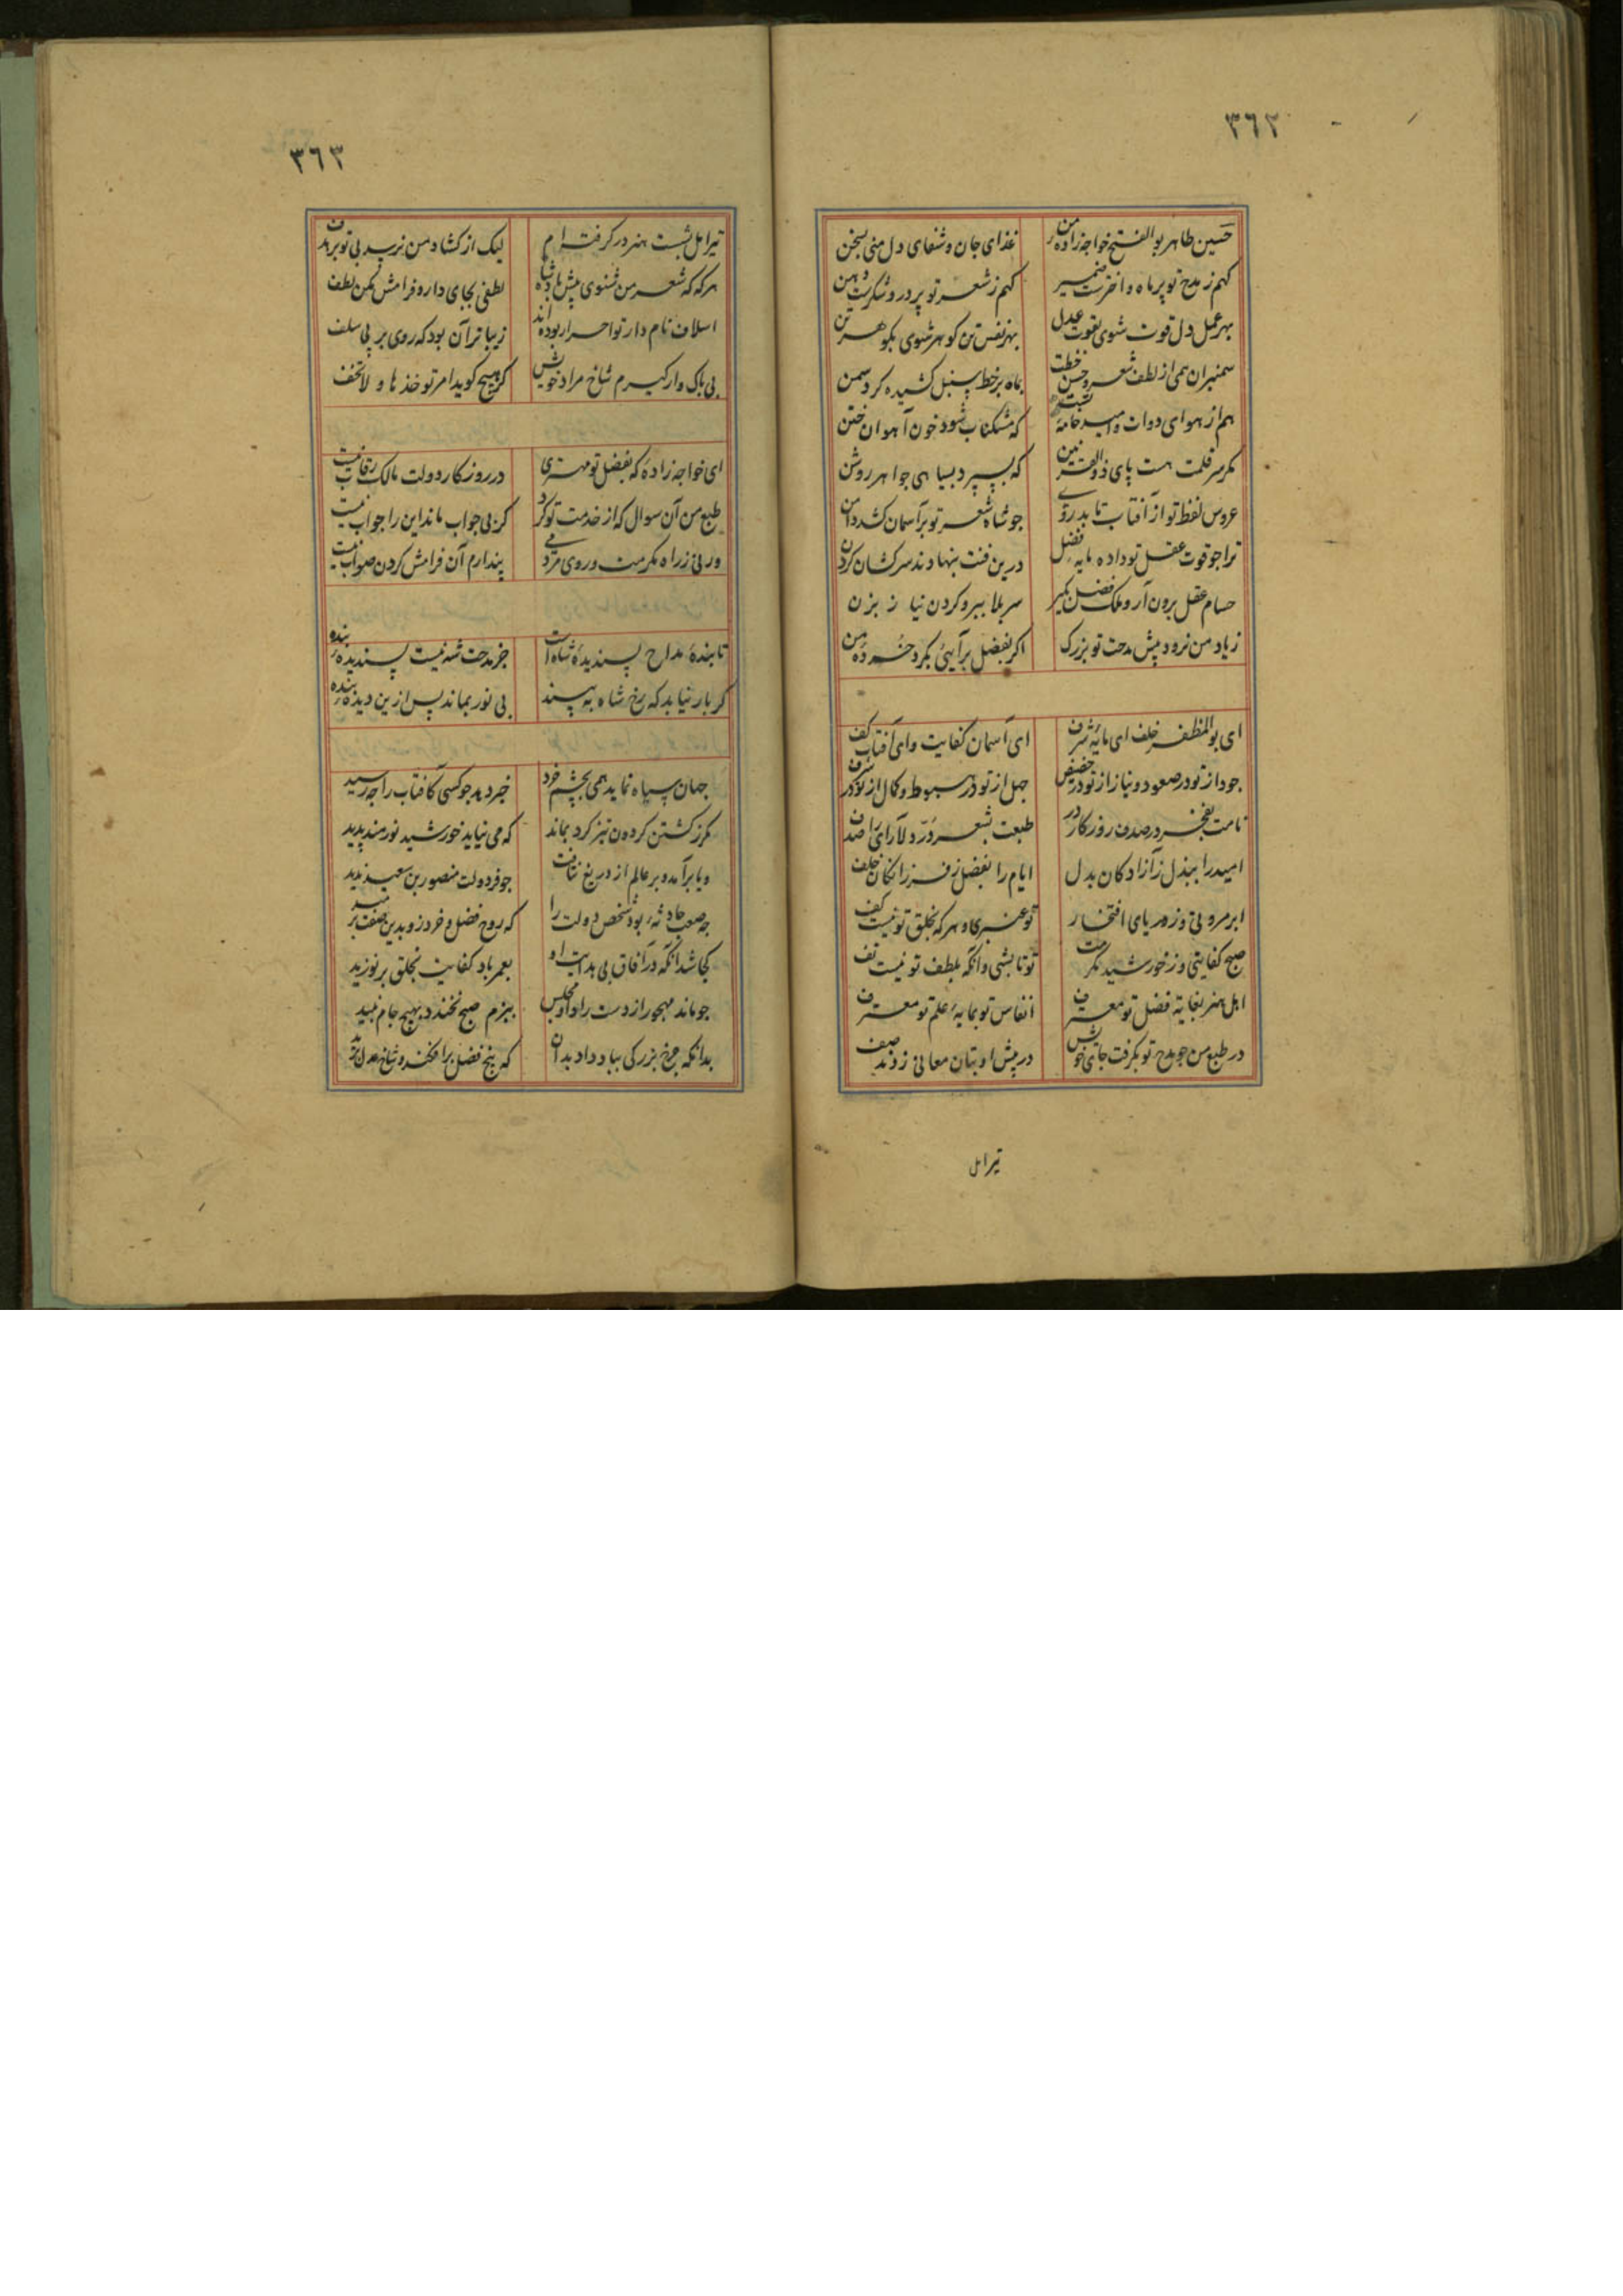 ٣٦٢
حسین طاهر بو الفتح خواجه زاده من غذای جان و شفای دل منی بسخن
کهم ز مدح تو پر ماه و اخترست ضمیر کهم ز شعر تو پر در و شکرست دهن
بهر عمل دل قوت شوی بقوت عدل بهر نفس تن کوهر شوی بکوهر تن
سمنبران همی از لطف شعر و حسن خطت بماه بر خط سنبل کشیده کرد سمن
هم از هوای دوات و امید خامهٔ که مشکناب شود خون آهوان ختن
مکر سر قلمت هست پای ذو القرنین که بسپرد بسیاهی جواهر روشن
عروس لفظ تو از آفتاب تابد روی جو شاه شعر تو بر آسمان کشد دامن
ترا جو قوت عقل تو داده مایه فضل درین فنت بنهادند سرکشان کردن
حسام عقل برون آر و ملک فضل بکیر سر بلا ببر و کردن نیاز بزن
زیاد من نرود پیش مدحت تو بزرک اکر بفضل بر آیی بکرد خرده من
ای بو المظفر خلف ای مایهٔ شرف ای آسمان کفایت وای آفتاب کف
جود از تو در صعود و نیاز از تو در حضیض جهل از تو در هبوط و کمال از تو در شرف
نامت بفخر در صدف روزکار در طبعت بشعر در دلارای را صدف
امید را ببذل ز آزادکان بدل ایام را بفضل ز فرزانکان خلف
ابر مروتی وز دریای افتخار تو عنبری و هر که بخلق تو نیست کف
صبح کفایتی وز خورشید مکرمت تو تابشی و آنکه بلطف تو نیست تف
اهل هنر بغایة فضل تو معترف انفاس تو بمایهٔ علم تو معترف
در طبع من جو مدح تو بکرفت جای خویش در پیش او بتان معانی زدند صف
تیر امل
٣٦٣
تیر امل بشست هنر در کرفته ام لیک از کشاد من نرسد بی تو بر هدف
هر که که شعر من شنوی پیش پادشاه لطفی بجای دار و فرامش مکن لطف
اسلاف نام دار تو احرار بوده اند زیباتر آن بود که روی بر پی سلف
بی باک وار کیرم شاخ مراد خویش کر هیچ کوید امر تو خذها و لا تخف
ای خواجه زادهٔ که بفضل تو مهتری در روزکار دولت مالک رقاب نیست
طبع من آن سوال که از خدمت تو کرد کر بی جواب ماند این را جواب نیست
ور نی ز راه مکرمت و روی مردمی پندارم آن فرامش کردن صواب نیست
تا بندهٔ مداح پسندیدهٔ شاه است جز مدحت شه نیست پسندیدهٔ بنده
کر بار نیابد که رخ شاه به بیند بی نور بماند پس ازین دیدهٔ بنده
جهان سیاه نماید همی بچشم خرد خبر دهید جو کسی کافتاب را جه رسید
مکر ز کشتن کردون تیز کرد بماند که می نیاید خورشید نورمند پدید
و یا برآمد و بر عالم از دریغ نتافت جو فر دولت منصور بن سعید ندید
جه صعب حادثهٔ بود شخص دولت را که روح فضل و خرد زو بدین صفت برمید
کجا شد آنکه در آفاق بی هدایت او بعمر باد کفایت بخلق بر نوزید
جو ماند مهجور از دست راد او مجلس ببزم صبح نخندد بهیچ جام نبید
بدانکه جرخ بزرکی بباد داد بدان که بیخ فضل برافکند و شاخ عدل برید